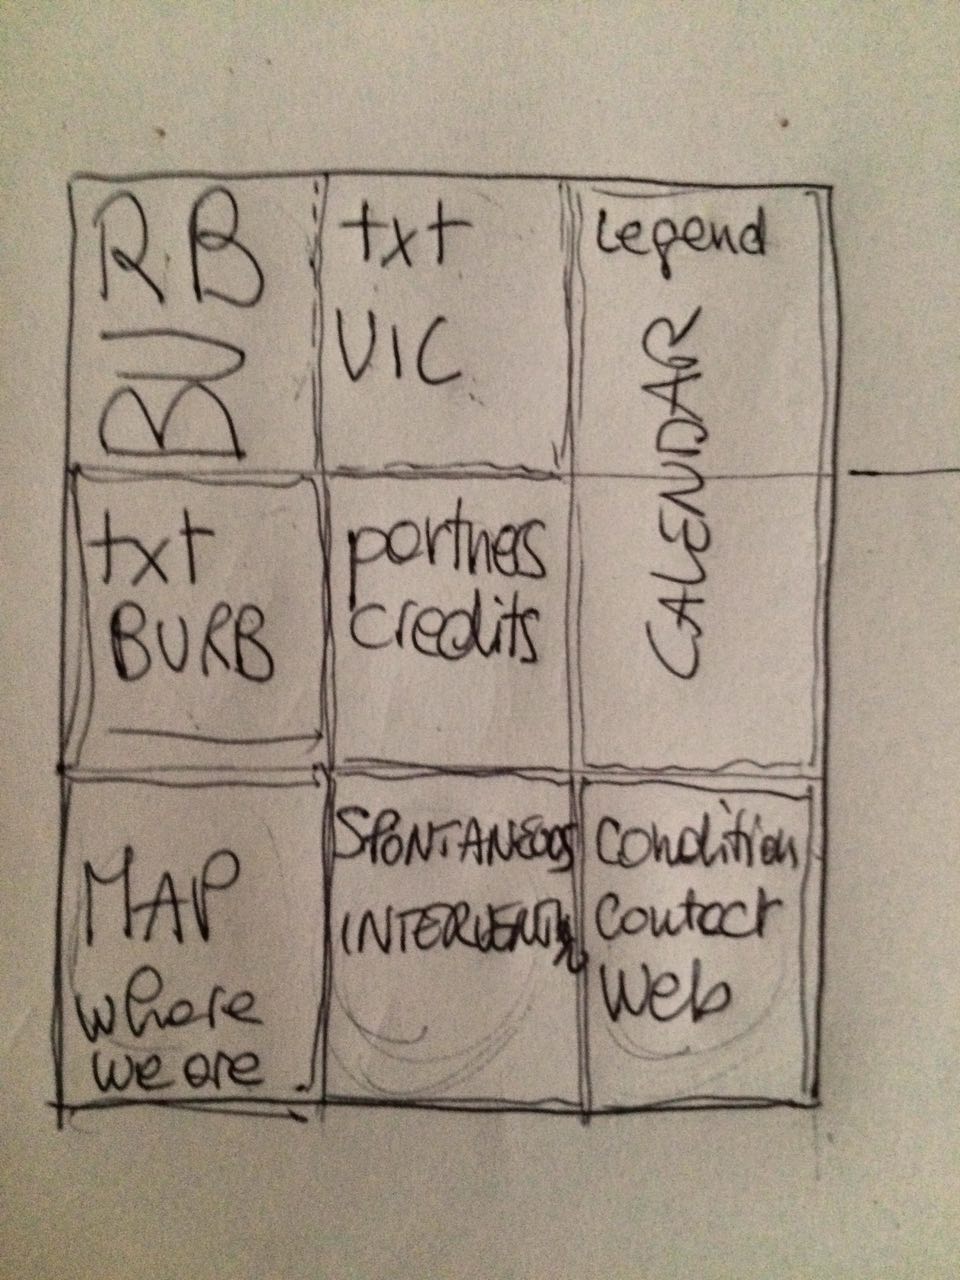 RB
BU
txt
VIC
Legend
CALENDAR
txt
BURB
partners
credits
MAP
where
we are
SPONTANEOUS
INTERVENTION
Condition
Contact
Web